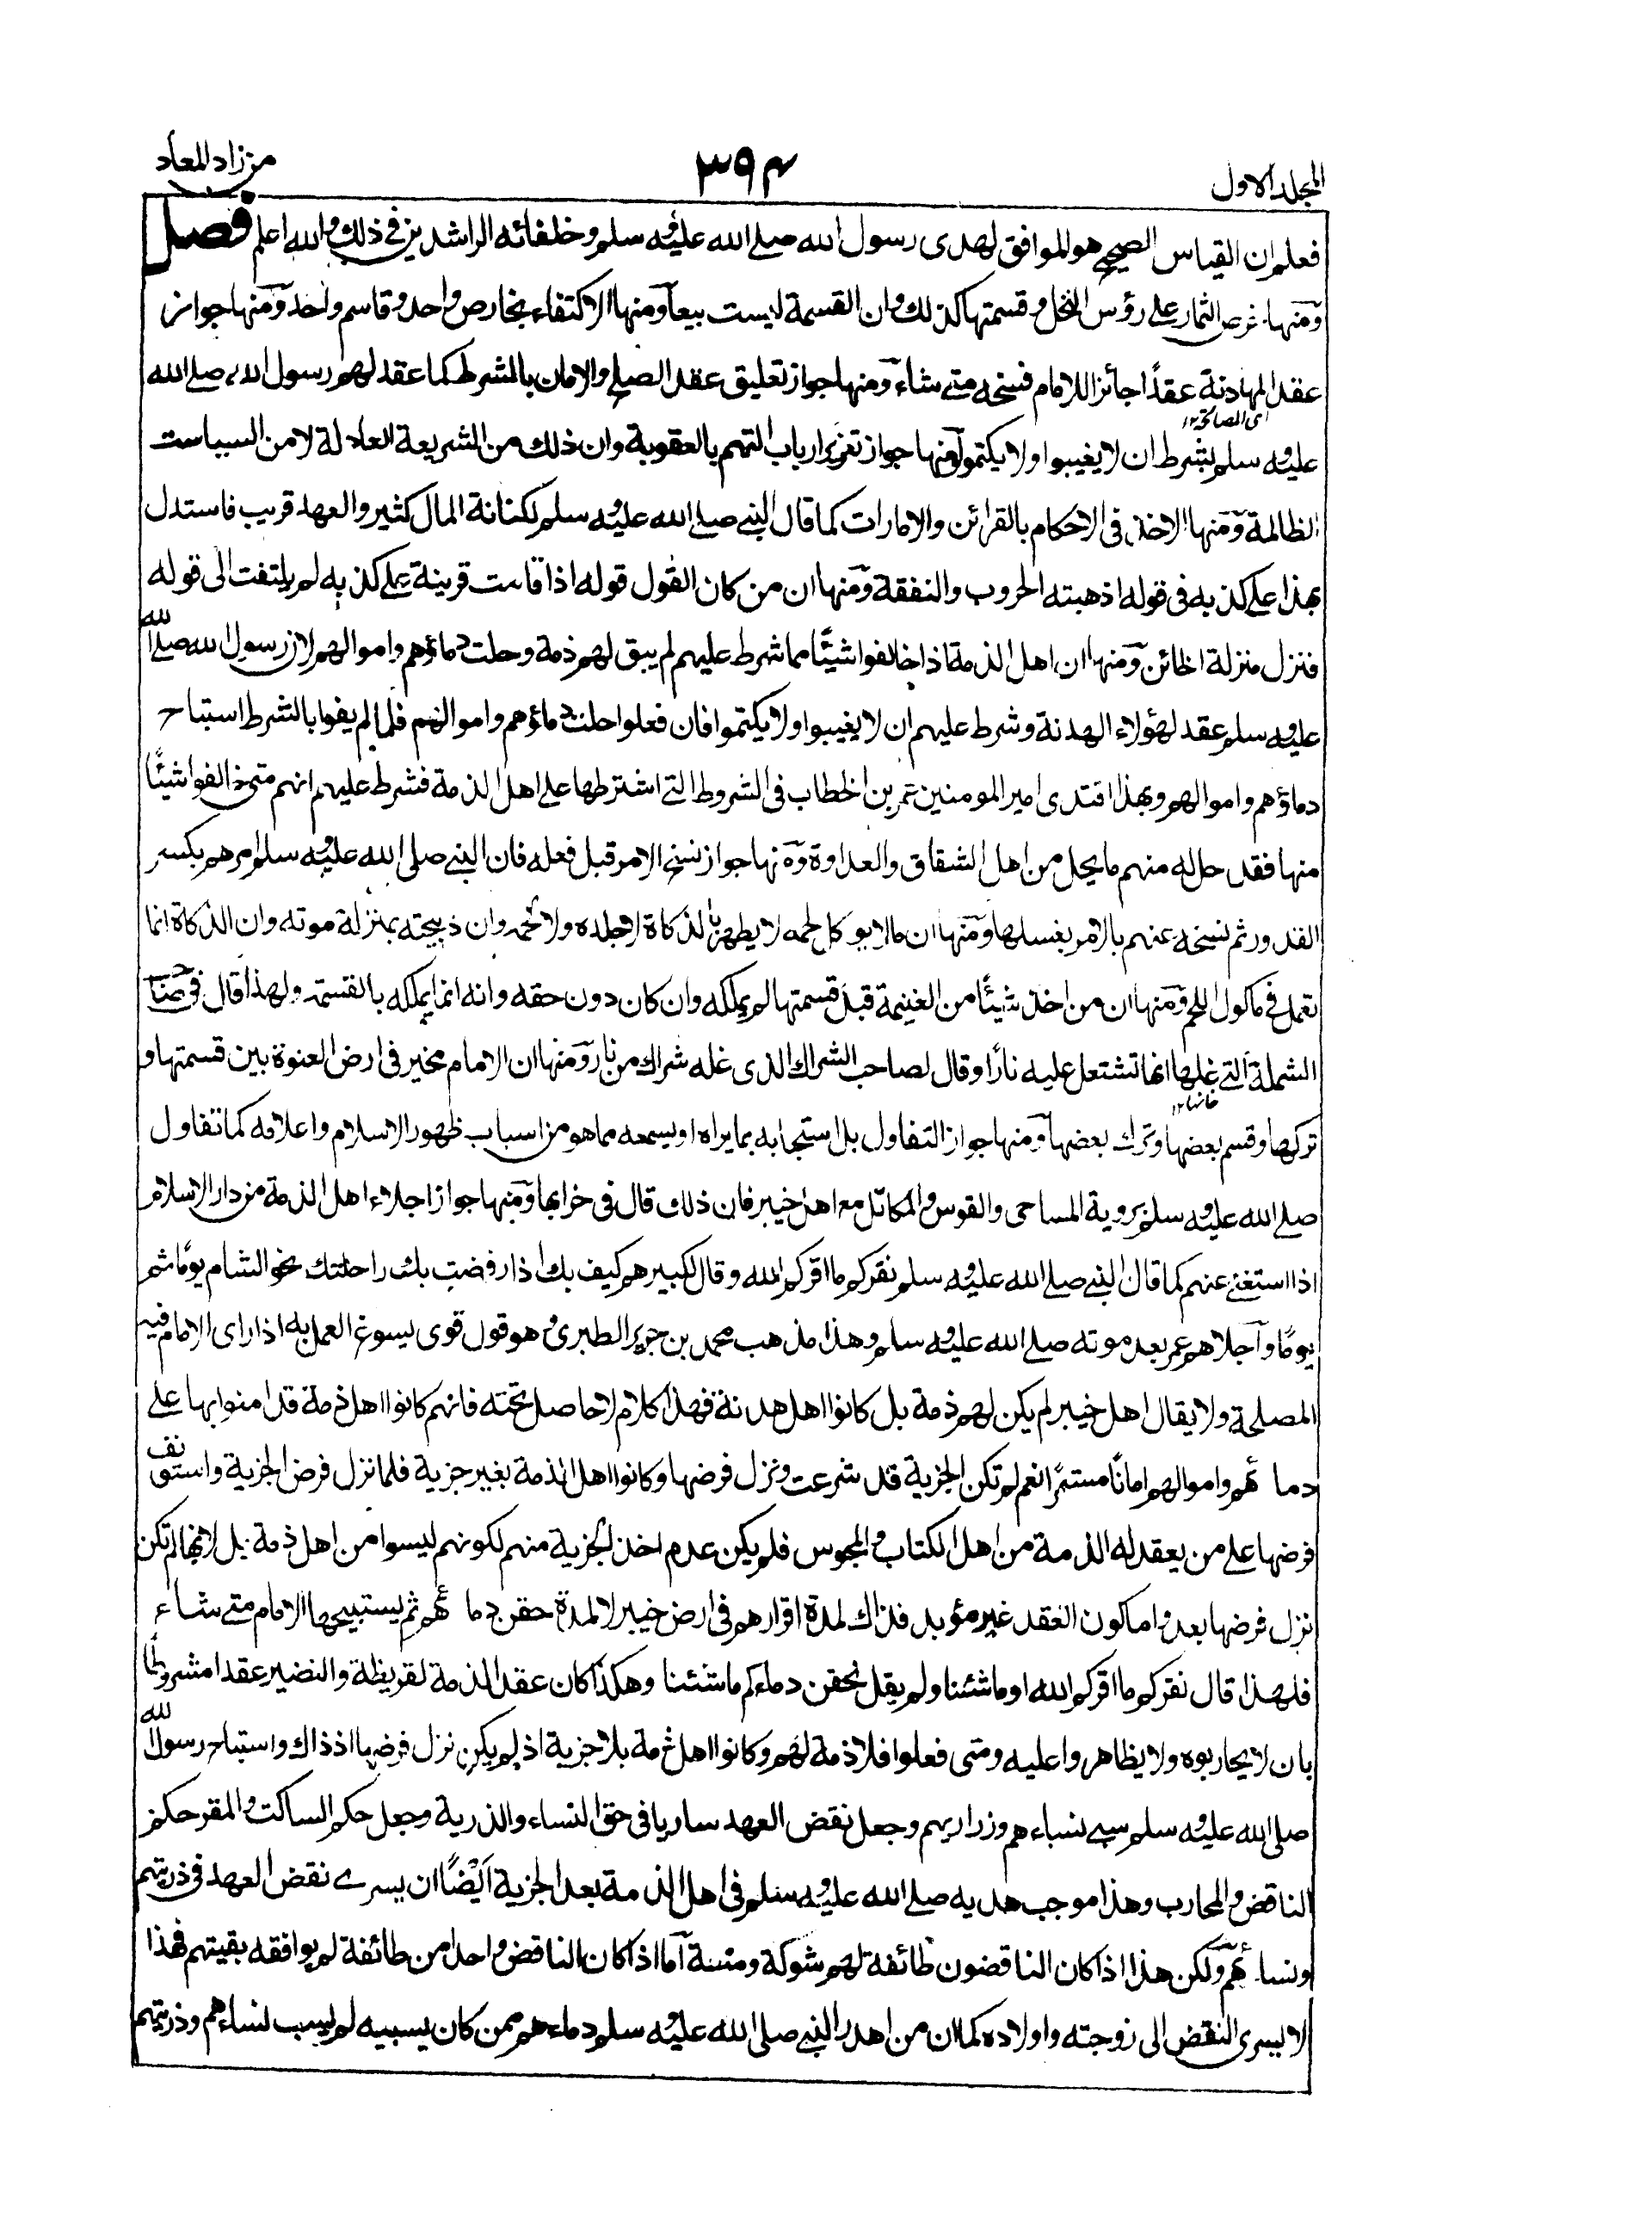 المجلد الاول
٣٩٤
من زاد المعاد
فعلم ان القياس الصحيح هو الموافق لهدى رسول الله صلى الله عليه وسلم وخلفائه الراشدين فى ذلك والله اعلم فصل
ومنها خرص الثمار على رؤس النخل وقسمتها كذلك وان القسمة ليست بيعا ومنها الاكتفاء بخارص واحد وقاسم واحد ومنها جواز
عقد المهادنة عقدًا جائزا للامام فسخه متى شاء ومنها جواز تعليق عقد الصلح والامان بالشرط كما عقد لهم رسول الله صلى الله
اى المصالحة ١٢
عليه وسلم بشرط ان لا يغيبوا ولا يكتموا ومنها جواز تعزير ارباب التهم بالعقوبة وان ذلك من الشريعة العادلة لا من السياست
الظالمة ومنها الاخذ فى الاحكام بالقرائن والامارات كما قال النبى صلى الله عليه وسلم لكنانة المال كثير والعهد قريب فاستدل
بهذا على كذبه فى قوله اذهبته الحروب والنفقة ومنها ان من كان القول قوله اذا قامت قرينة على كذبه لم يلتفت الى قوله
فنزل منزلة الخائن ومنها ان اهل الذمة اذا خالفوا شيئًا مما شرط عليهم لم يبق لهم ذمة وحلت دماؤهم واموالهم لان رسول الله صلى الله
عليه وسلم عقد لهؤلاء الهدنة وشرط عليهم ان لا يغيبوا ولا يكتموا فان فعلوا حلت دماؤهم واموالهم فلما لم يفوا بالشرط استباح
دماؤهم واموالهم وبهذا اقتدى امير المومنين عمر بن الخطاب فى الشروط التى اشترطها على اهل الذمة فشرط عليهم انهم متى خالفوا شيئًا
منها فقد حل له منهم ما يحل من اهل الشقاق والعداوة ومنها جواز نسخ الامر قبل فعله فان النبى صلى الله عليه وسلم امرهم بكسر
القدور ثم نسخه عنهم بالامر بغسلها ومنها ان ما لا يوكل لحمه لا يطهر بالذكاة لا جلده ولا لحمه وان ذبيحته بمنزلة موته وان الذكاة انما
تعمل فى ماكول اللحم ومنها ان من اخذ شيئًا من الغنيمة قبل قسمتها لم يملكه وان كان دون حقه وانه انما يملكه بالقسمة ولهذا قال فى صاحب
الشملة التى غلها انها تشتعل عليه نارًا وقال لصاحب الشراك الذى غله شراك من نار ومنها ان الامام مخير فى ارض العنوة بين قسمتها و
خانها ١٢
تركها وقسم بعضها وترك بعضها ومنها جواز التفاول بل استحبابه بما يراه او يسمعه مما هو من اسباب ظهور الاسلام واعلامه كما تفاول
صلى الله عليه وسلم بروية المساحى والقوس والمكاتل مع اهل خيبر فان ذلك قال فى خرابها ومنها جواز اجلاء اهل الذمة من دار الاسلام
اذا استغنى عنهم كما قال النبى صلى الله عليه وسلم نقركم ما اقركم الله وقال لكبيرهم كيف بك اذا رفضت بك راحلتك نحو الشام يومًا ثم
يومًا وآجلاهم عمر بعد موته صلى الله عليه وسلم وهذا مذهب محمد بن جرير الطبرى وهو قول قوى يسوغ العمل به اذا راى الامام فيه
المصلحة ولا يقال اهل خيبر لم يكن لهم ذمة بل كانوا اهل هدنة فهذا كلام لا حاصل تحته فانهم كانوا اهل ذمة قد امنوا بها على
دمائهم واموالهم امانًا مستمرًا نعم لم تكن الجزية قد شرعت ونزل فرضها وكانوا اهل الذمة بغير جزية فلما نزل فرض الجزية واستونف
فرضها على من يعقد له الذمة من اهل الكتاب والمجوس فلم يكن عدم اخذ الجزية منهم لكونهم ليسوا من اهل ذمة بل لانها لم تكن
نزل فرضها بعد واما كون العقد غير مؤبد فذاك لمدة اقرارهم فى ارض خيبر لا لمدة حقن دمائهم ثم يستبيحها الامام متى شاء
فلهذا قال نقركم ما اقركم الله او ما شئنا ولم يقل نحقن دماءكم ما شئنا وهكذا كان عقد الذمة لقريظة والنضير عقدا مشروطًا
بان لا يحاربوه ولا يظاهروا عليه ومتى فعلوا فلا ذمة لهم وكانوا اهل ذمة بلا جزية اذ لم يكن نزل فرضها اذ ذاك واستباح رسول الله
صلى الله عليه وسلم سبى نساءهم وزراريهم وجعل نقض العهد ساريا فى حق النساء والذرية وجعل حكم الساكت والمقر حكم
الناقض والمحارب وهذا موجب هديه صلى الله عليه وسلم فى اهل الذمة بعد الجزية اَيْضًا ان يسرے نقض العهد فى ذريتهم
ونسائهم ولكن هذا اذا كان الناقضون طائفة لهم شوكة ومنعة آما اذا كان الناقض واحدا من طائفة لم يوافقه بقيتهم فهذا
لا يسرى النقض الى زوجته واولاده كما ان من اهدر النبى صلى الله عليه وسلم دماءهم ممن كان يسبيه لم يسب نساءهم وذريتهم